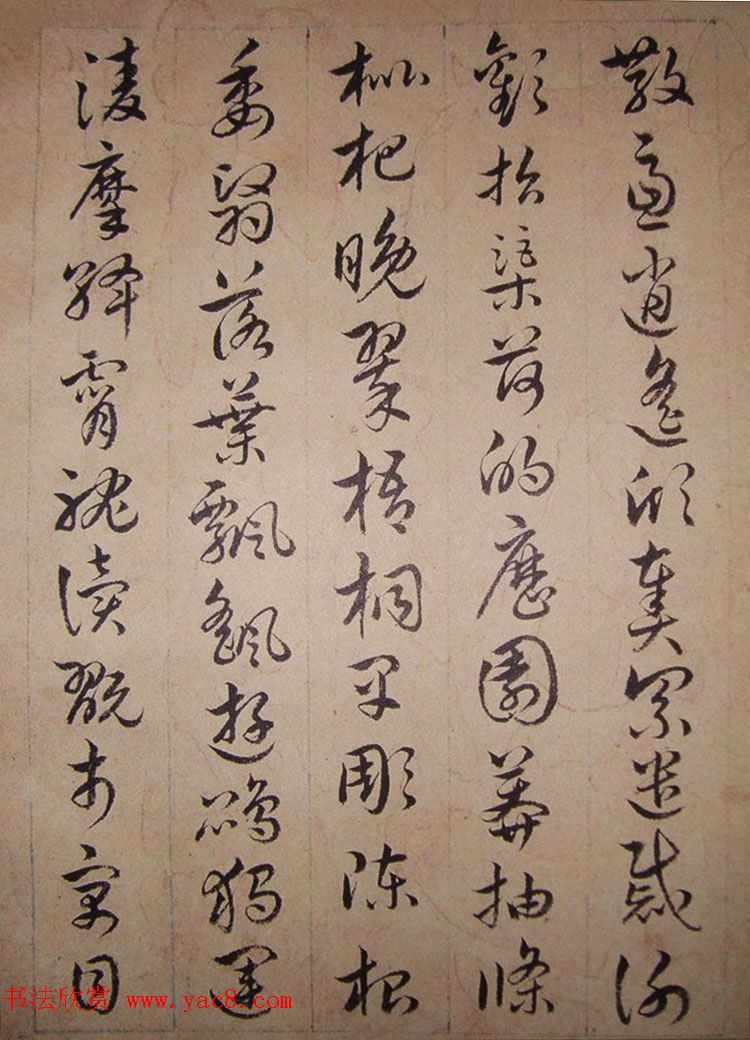 散慮逍遙欣奏累遣慼謝
歡招渠荷的歷園莽抽條
枇杷晚翠梧桐早彫陳根
委翳落葉飄颻遊鵾獨運
淩摩絳霄耽讀翫市寓目
书法欣赏 www.yac8.com